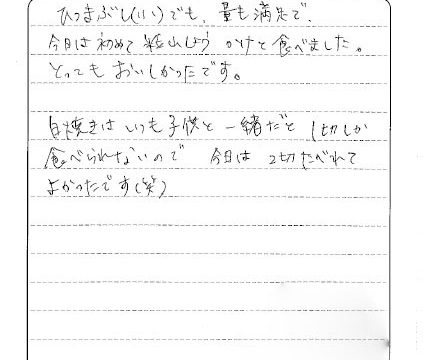 ひつまぶし(いい)でも、量も満足で、
今日は初めて粉山しょう かけて食べました。
とってもおいしかったです。
白焼きは いつも子供と一緒だと 1切しか
食べられないので 今日は 2切たべれて
よかったです(笑)